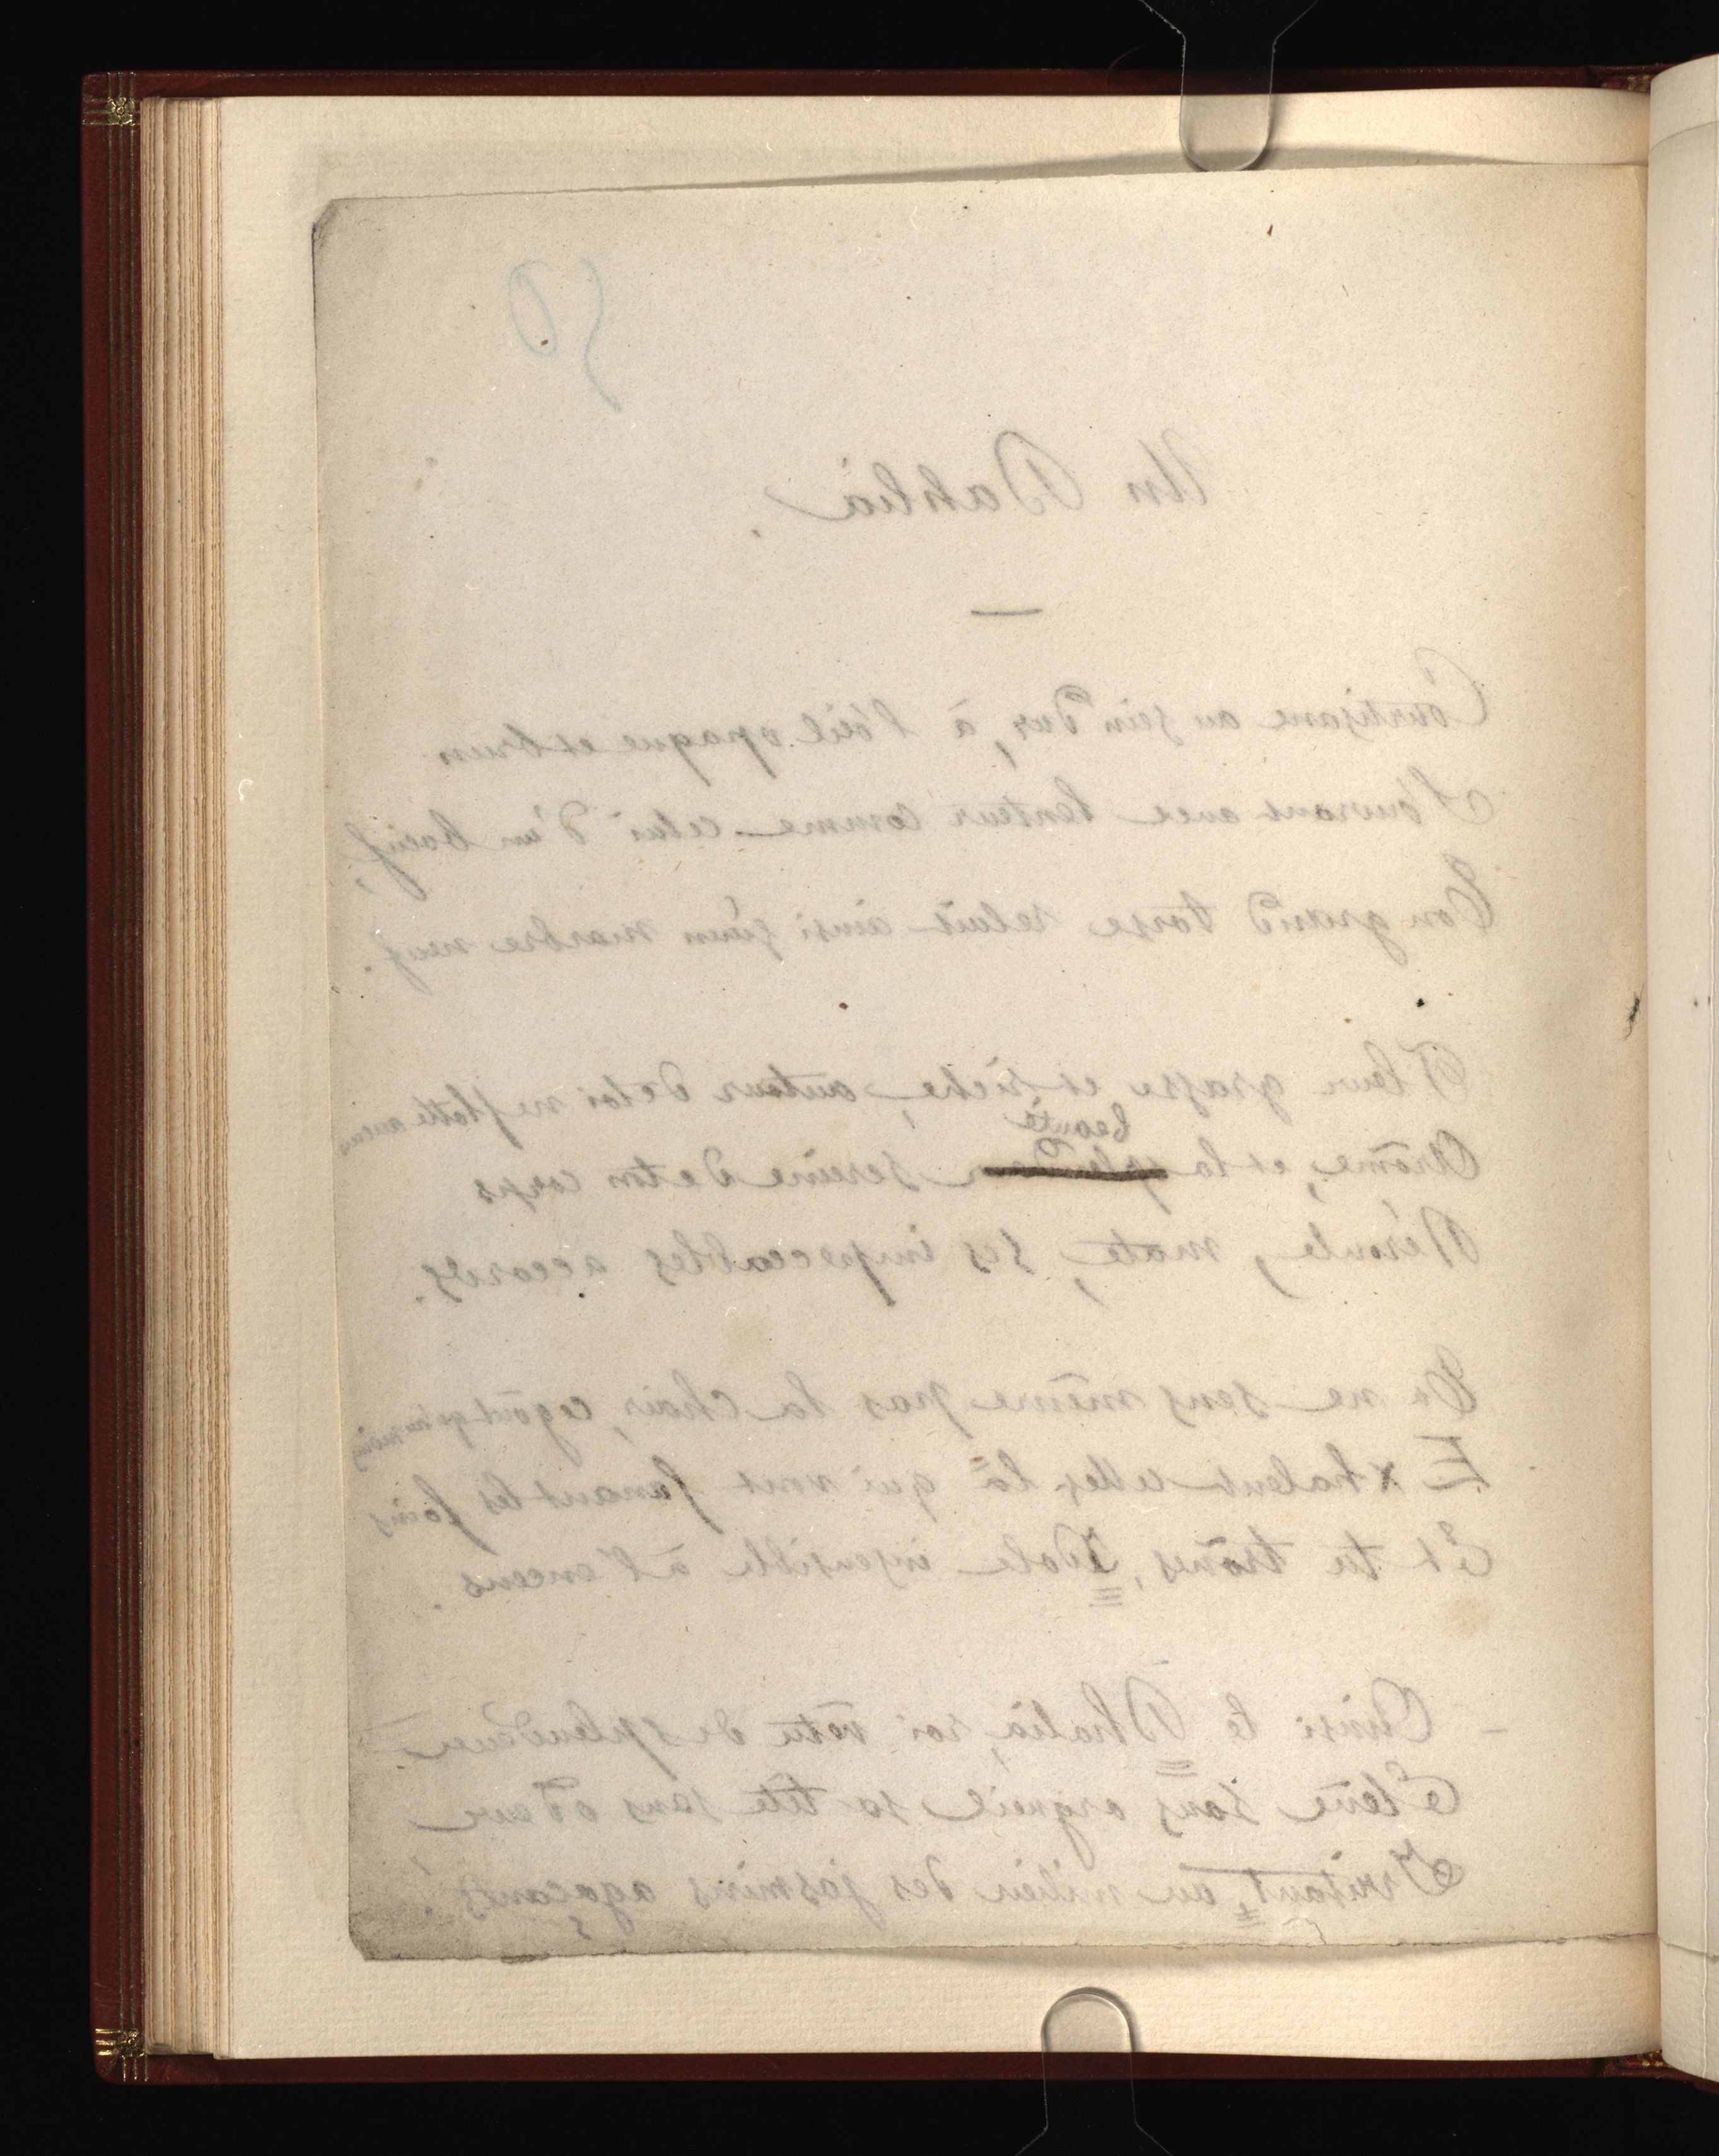 50
Un Dahlia.
Courtisane au sein dur, à l'œil opaque et brun
S'ouvrant avec lenteur comme celui d'un bœuf,
Ton grand torse reluit ainsi qu'un marbre neuf.
Fleur grasse et riche, autour de toi ne flotte aucun
beauté
Arôme, et la splendeur sereine de ton corps
Déroule, mate, ses impeccables accords.
Tu ne sens même pas la chair, ce goût qu'au moins
Exhalent celles-là qui vont fanant les foins
Et tu trônes, Idole insensible à l'encens.
– Ainsi le Dhalia, roi vêtu de splendeur
Elève sans orgueil sa tête sans odeur
Irritant, au milieu des jasmins agaçants!